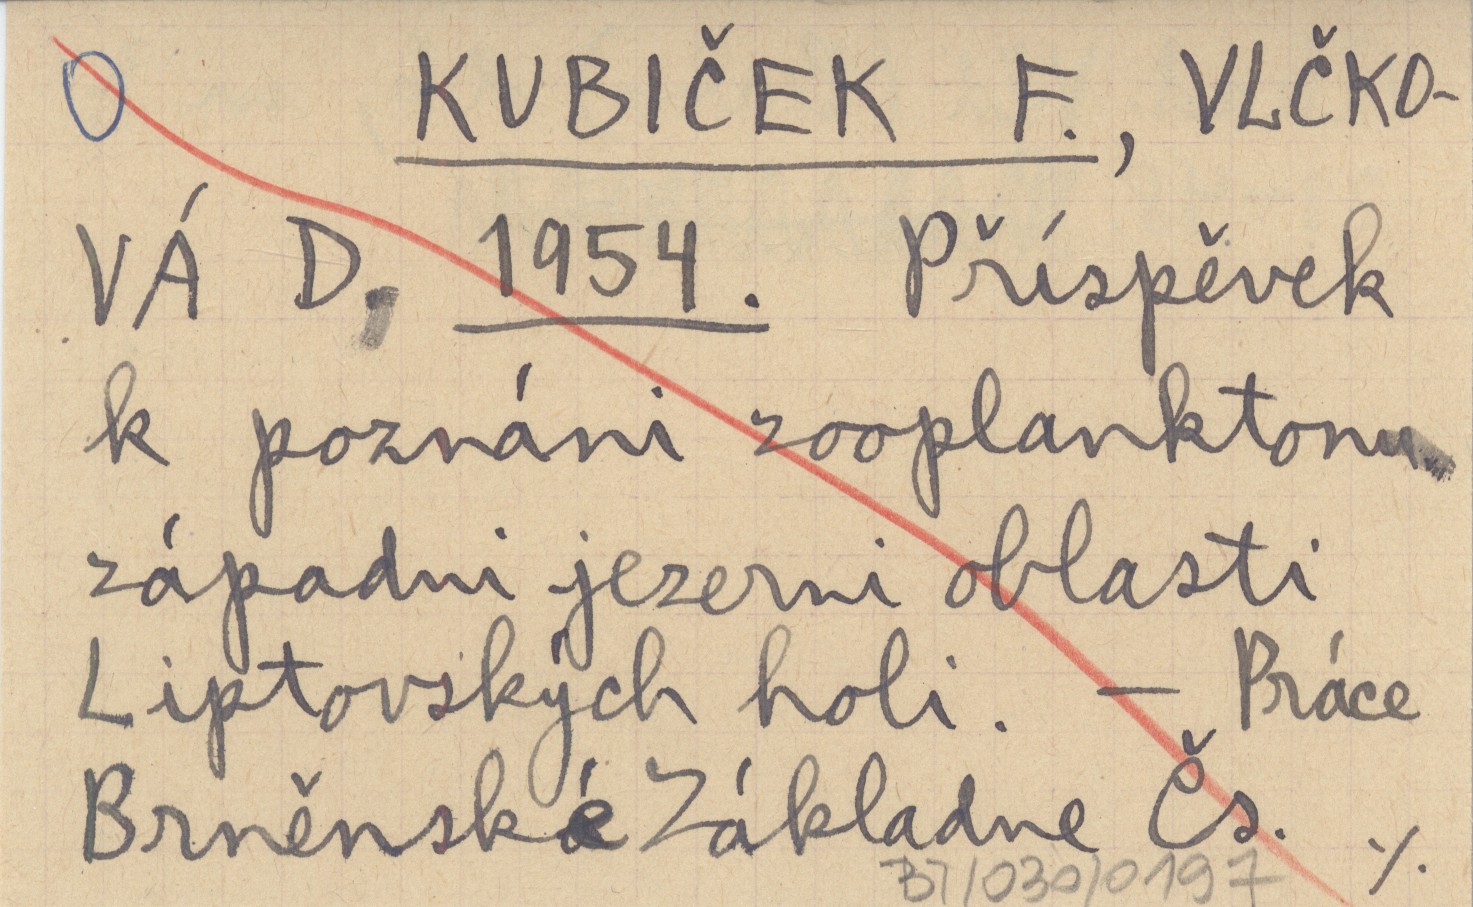 O KUBIČEK F., VLČKO-
VÁ D, 1954. Příspěvek
k poznáni zooplanktonu
západni jezerni oblasti
Liptovských holi. — Práce
Brněnské Základne Čs. ./.
BT/030/0197